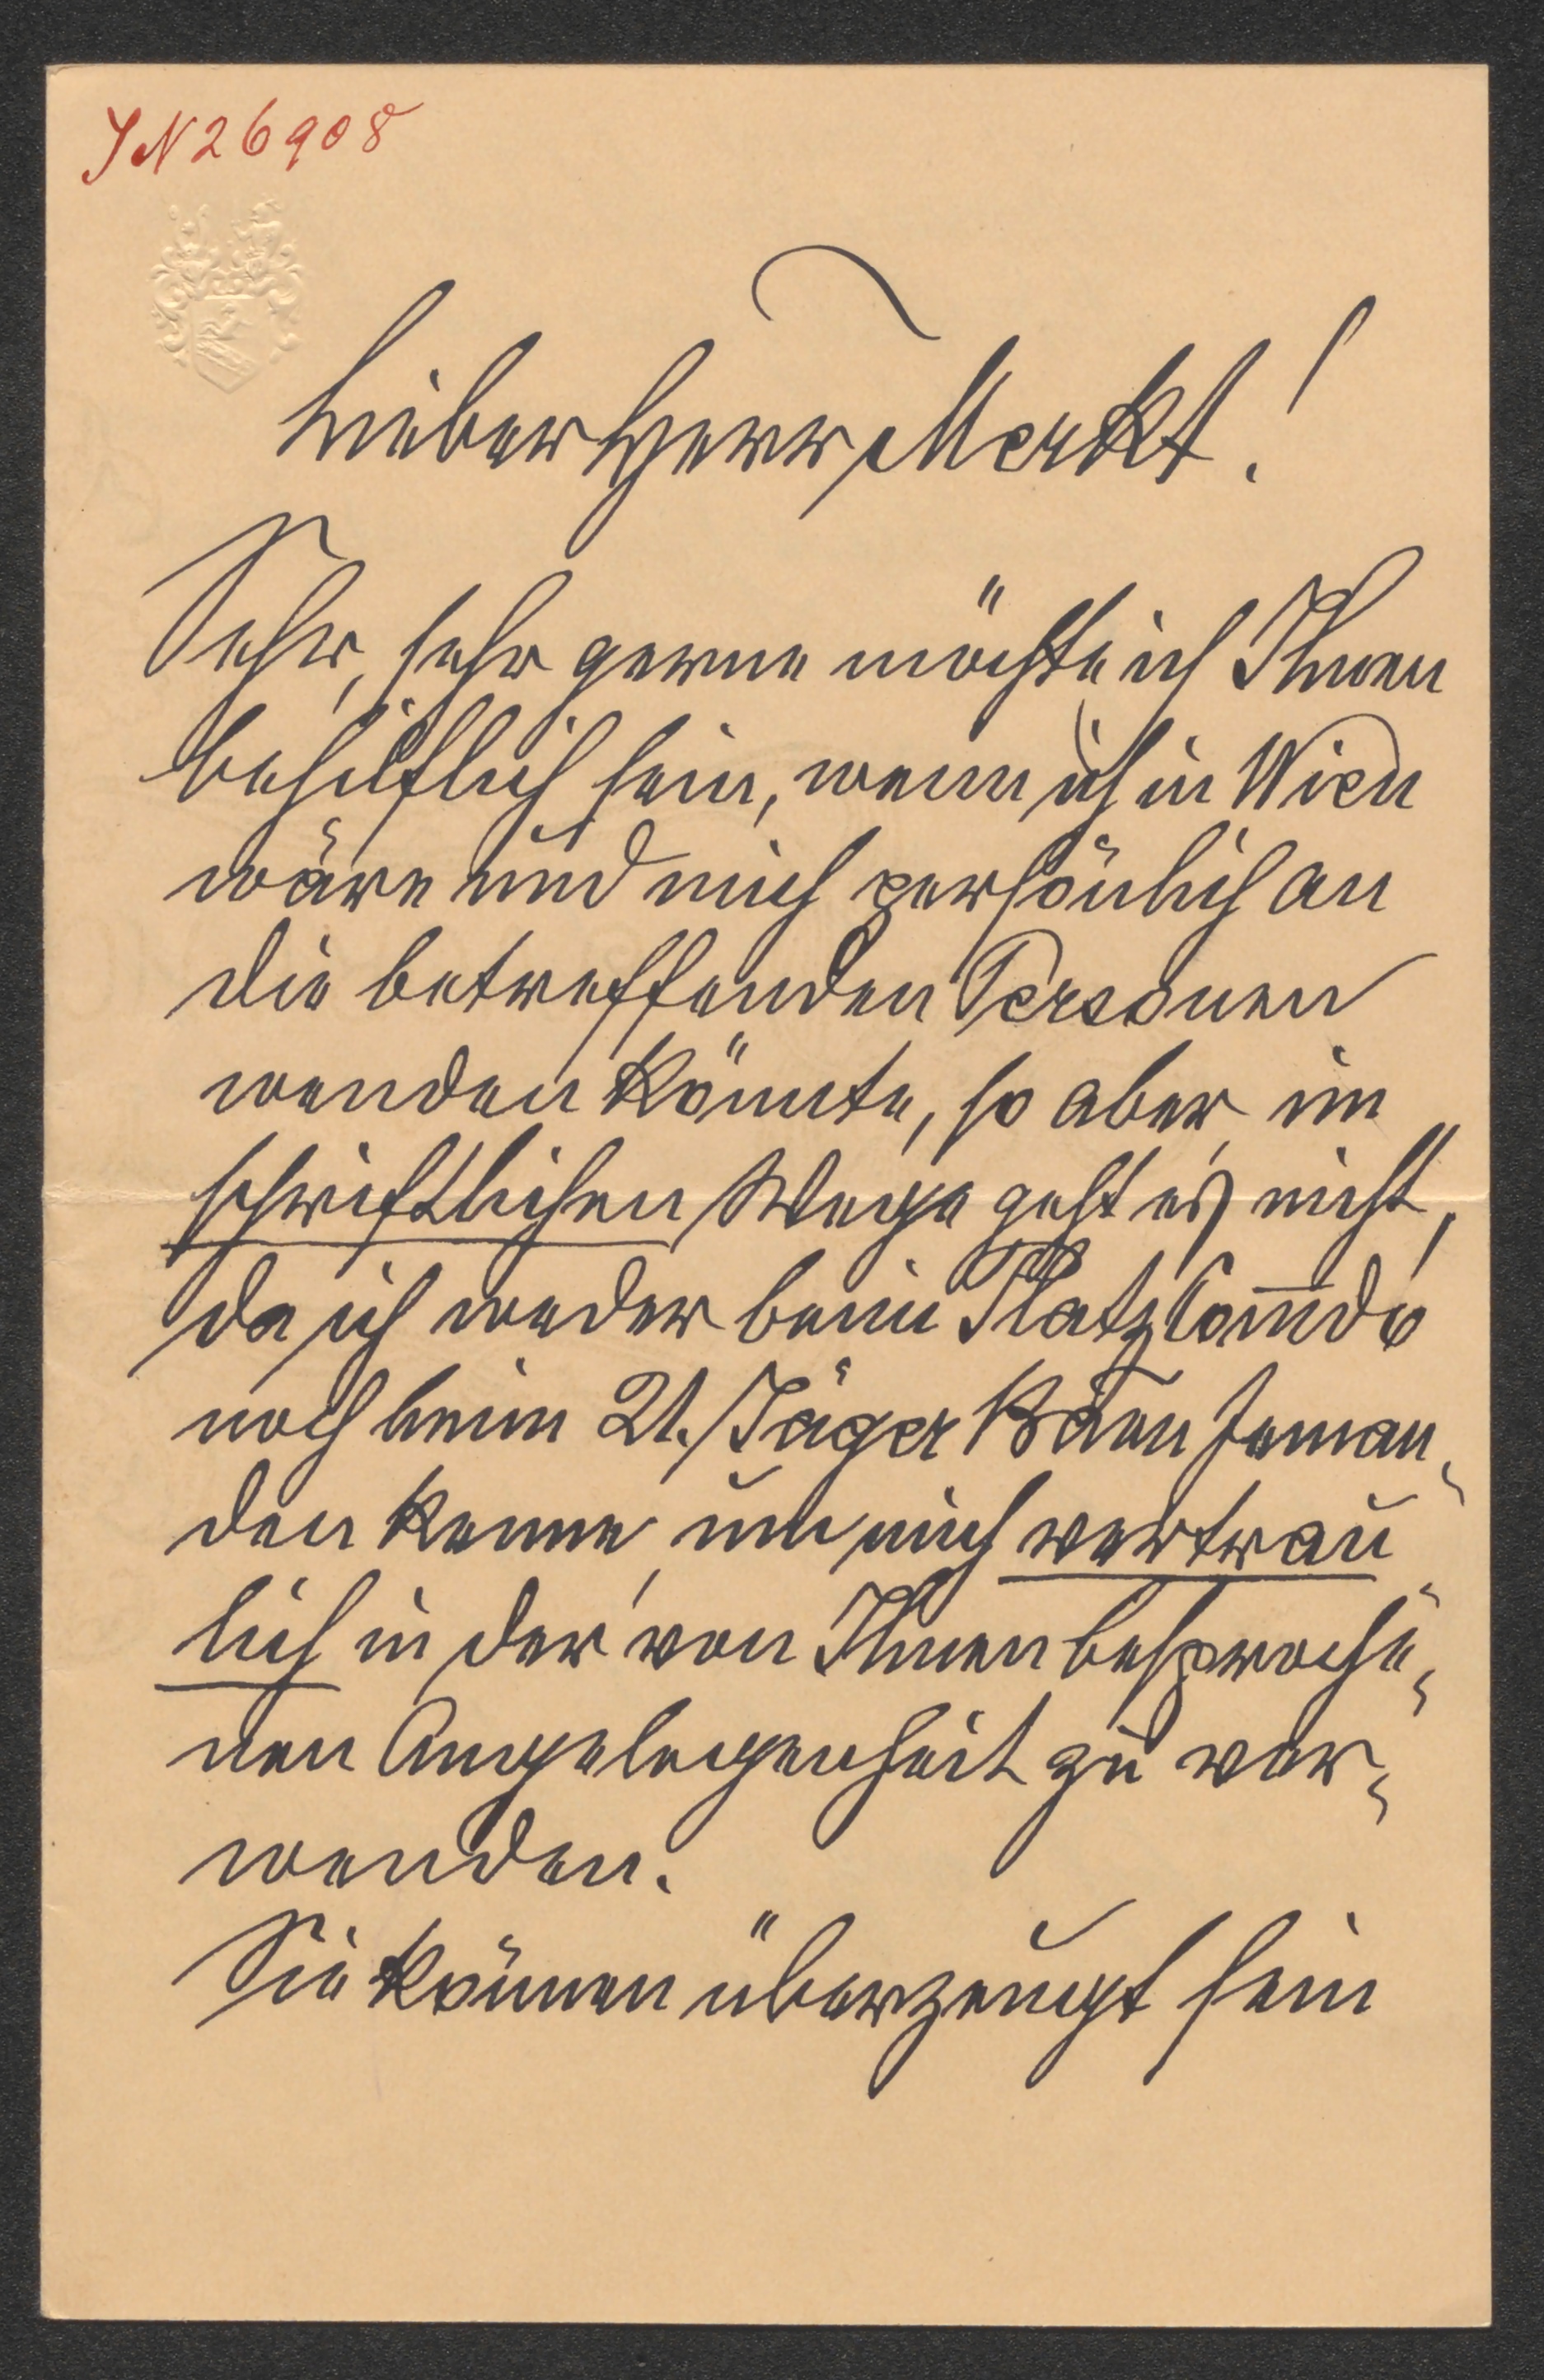 JN 26908
Lieber Herr Merkt!
Sehr, sehr gerne möchte ich Ihnen
behilflich sein, wenn ich in Wien
wäre und mich persönlich an
die betreffenden Personen
wenden könnte, so aber, im
schriftlichen Wege geht es nicht,
da ich weder beim Platz Com̅do
noch beim 21. Jäger Baon Jeman¬
den kenne, um mich vertrau
lich in der von Ihnen besproche¬
nen Angelegenheit zu ver¬
wenden.
Sie können überzeugt sein